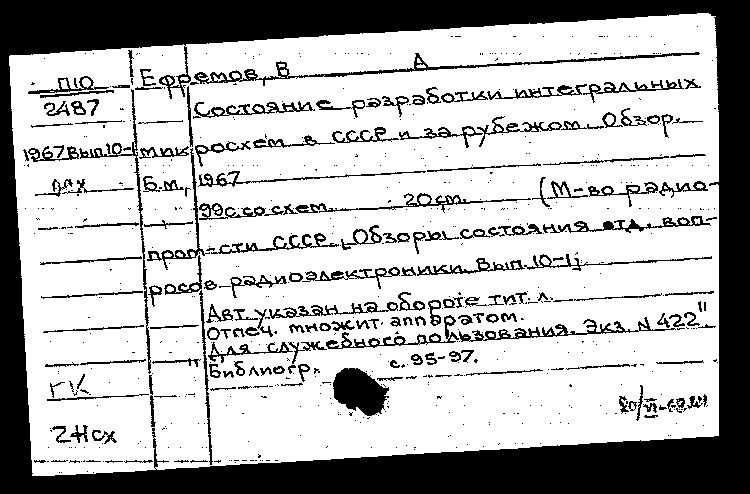 П10 Ефремов, В А
2487 Состояние разработки интегральных
1967 Вып.10-1 микросхем в СССР и за рубежом. Обзор.
Б.м., 1967
99 с. со схем. 20 см. (М-во радио-
пром-сти СССР. Обзоры состояния отд. воп-
росов радиоэлектроники. Вып. 10-1)
Авт. указан на обороте тит. л.
Отпеч. множит. аппаратом.
"Для служебного пользования. Экз. N 422".
Библиогр. с. 95-97.
ГК
2Нсх